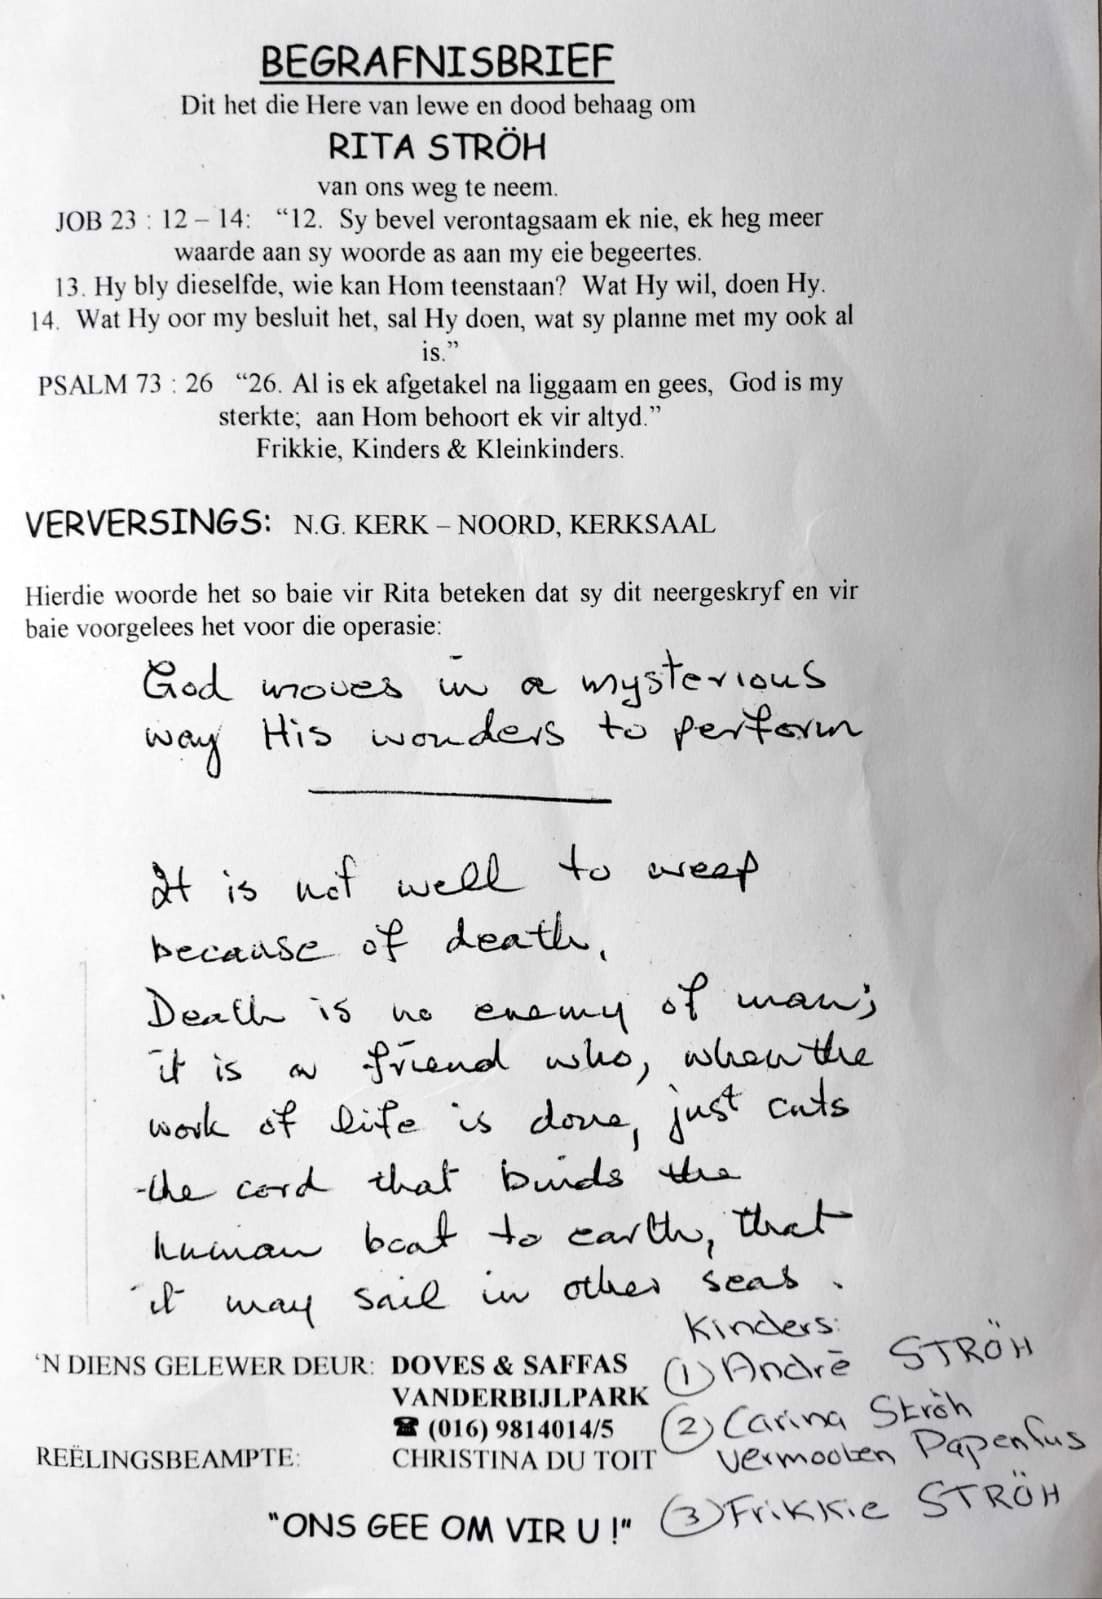 BEGRAFNISBRIEF
Dit het die Here van lewe en dood behaag om
RITA STRÖH
van ons weg te neem.
JOB 23 : 12 – 14: “12. Sy bevel verontagsaam ek nie, ek heg meer
waarde aan sy woorde as aan my eie begeertes.
13. Hy bly dieselfde, wie kan Hom teenstaan? Wat Hy wil, doen Hy.
14. Wat Hy oor my besluit het, sal Hy doen, wat sy planne met my ook al
is.”
PSALM 73 : 26 “26. Al is ek afgetakel na liggaam en gees, God is my
sterkte; aan Hom behoort ek vir altyd.”
Frikkie, Kinders & Kleinkinders.
VERVERSINGS: N.G. KERK – NOORD, KERKSAAL
Hierdie woorde het so baie vir Rita beteken dat sy dit neergeskryf en vir
baie voorgelees het voor die operasie:
God moves in a mysterious
way His wonders to perform
It is not well to weep
because of death.
Death is no enemy of man;
it is a friend who, when the
work of life is done, just cuts
the cord that binds the
human boat to earth, that
it may sail in other seas.
Kinders:
‘N DIENS GELEWER DEUR: DOVES & SAFFAS
VANDERBIJLPARK
☎ (016) 9814014/5
REËLINGSBEAMPTE: CHRISTINA DU TOIT
"ONS GEE OM VIR U !"
(1) Andrè STRÖH
(2) Carina Ströh
Vermooten Papenfus
(3) Frikkie STRÖH